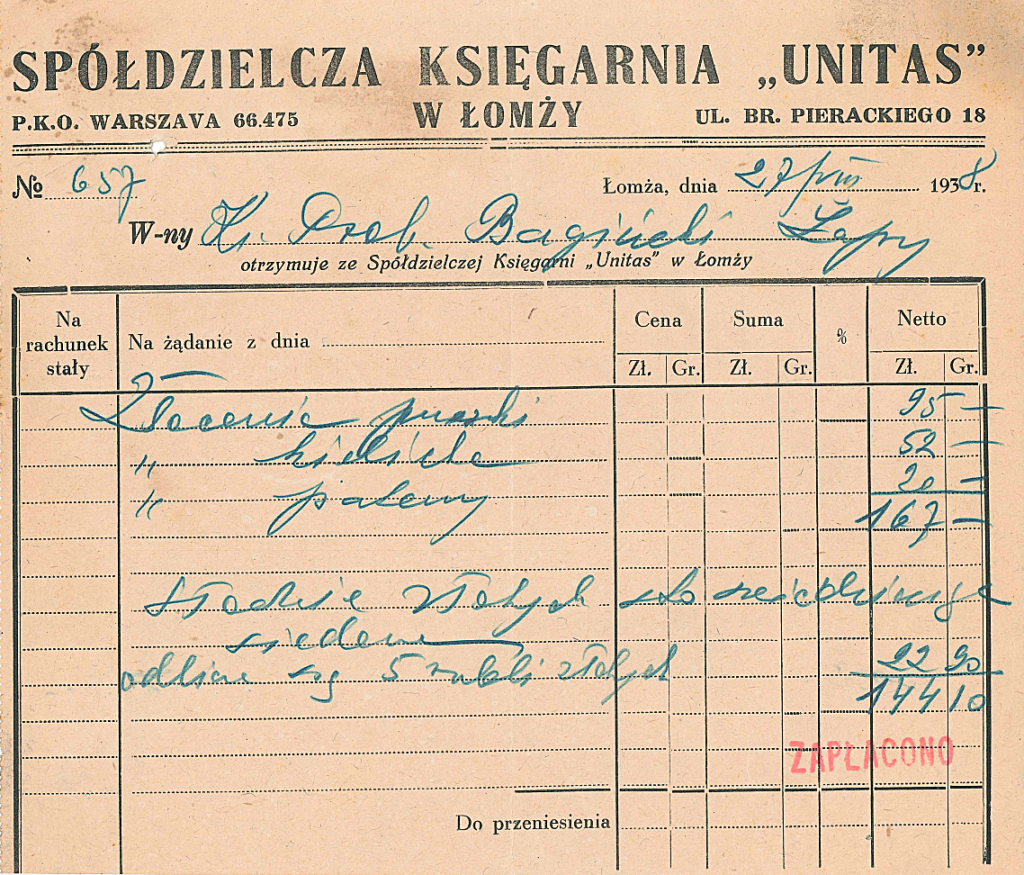 SPÓŁDZIELCZA KSIĘGARNIA „UNITAS”
P.K.O. WARSZAVA 66.475 W ŁOMŻY UL. BR. PIERACKIEGO 18
№ 657 Łomża, dnia 27/VIII 1938 r.
W-ny Ks. Prob. Bagiński Łapy
otrzymuje ze Spółdzielczej Księgarni „Unitas” w Łomży
Na rachunek stały Na żądanie z dnia Cena Suma % Netto
Zł. Gr. Zł. Gr. Zł. Gr.
Złocenie puszki 95 —
„ kielicha 52 —
„ pateny 20 —
167 —
złotych sto sześćdziesiąt
siedem
odlicza się 5 rubli złotych 22 90
144 10
ZAPŁACONO
Do przeniesienia